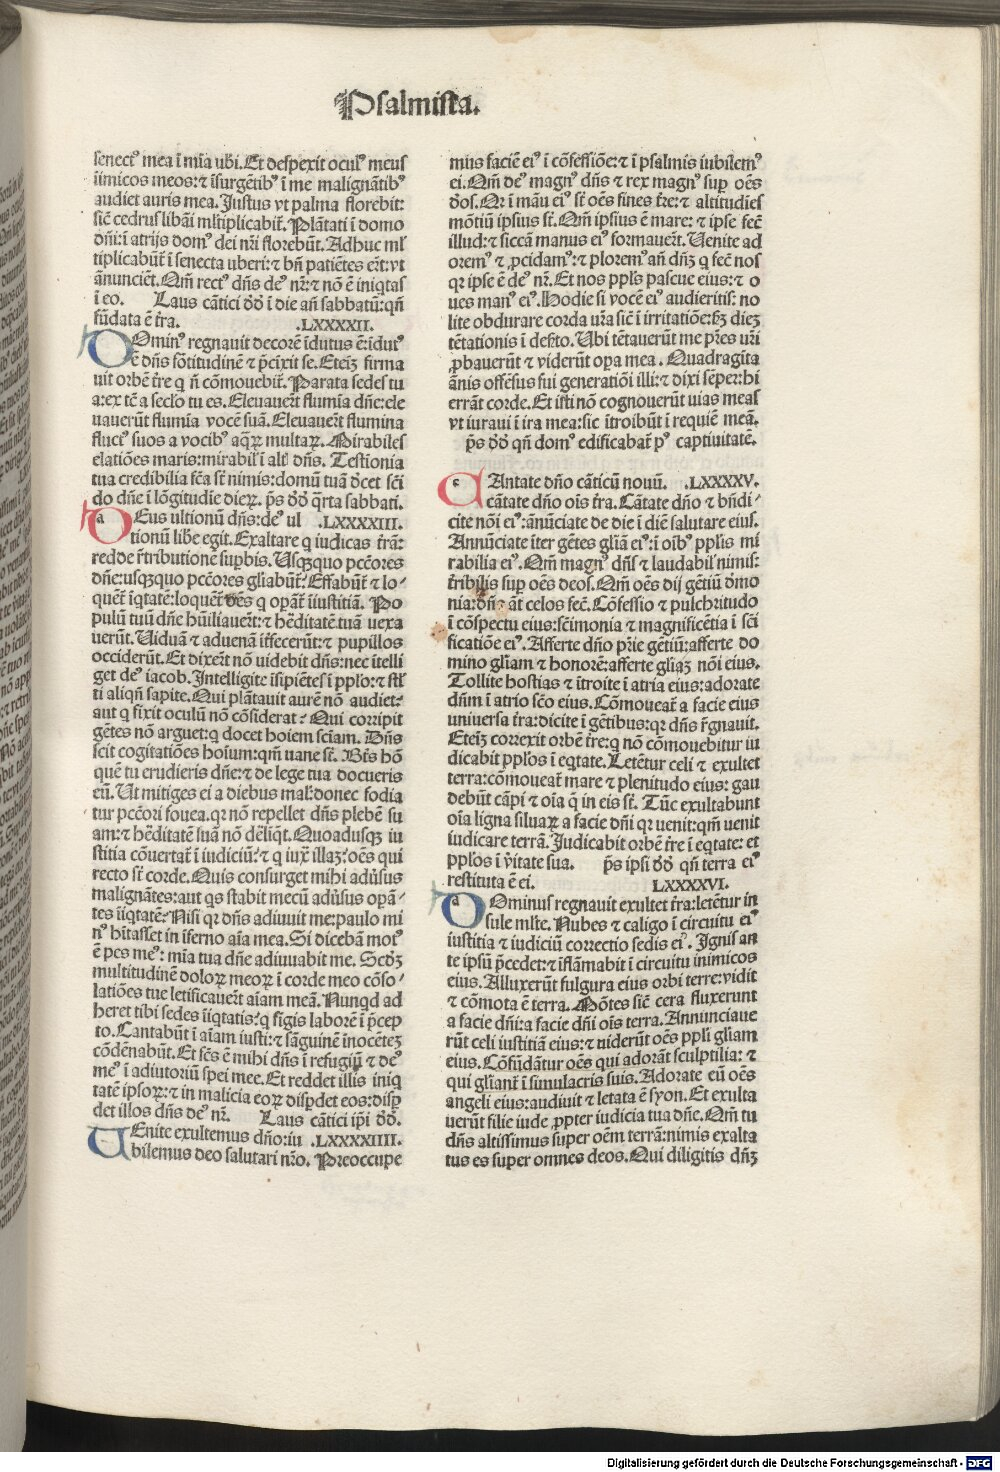 Psalmista.
senectꝰ mea ī mīa ubi. Et despexit oculꝰ meus
iīmicos meos: ⁊ īsurgētibꝰ ī me malignātibꝰ
audiet auris mea. Justus vt palma florebit:
sic̄ cedrus libāi ml̄tiplicabit̄. Plātati ī domo
dn̄i: ī atrijs domꝰ dei nr̄i florebūt. Adhuc ml̄
tiplicabūt̄ ī senecta uberi: ⁊ bn̄ patiētes er̄t: vt
ānunciēt. Qm̄ rectꝰ dn̄s deꝰ nr̄: ⁊ nō ē iniqtas
ī eo. Laus cātici dd̄ ī die an̄ sabbatū: qn̄
fūdata ē tr̄a. .LXXXXII.
DOminꝰ regnauit decorē īdutus ē: īdutꝰ
ē dn̄s fōtitudinē ⁊ p̄cīxit se. Eteīz firma
uit orbē tr̄e q n̄ cōmouebit̄. Parata sedes tu
a: ex tē a seclo tu es. Eleuauer̄t flumīa dn̄e: ele
uauerūt flumīa vocē suā. Eleuauer̄t flumina
fluctꝰ suos a vocibꝰ aqꝝ multaꝝ. Mirabiles
elatiōes maris: mirabil̄ ī alt̄ dn̄s. Testīonia
tua credibilia fc̄a st̄ nimis: domū tuā d̄cet sc̄i
do dn̄e ī lōgitudīe dieꝝ. ps̄ dd̄ qr̄ta sabbati.
DEus ultionū dn̄s: deꝰ ul .LXXXXIII.
tionū libe egit. Exaltare q iudicas tr̄ā:
redde r̄tributionē supbis. Usqꝫquo pcc̄ores
dn̄e: usqꝫquo pcc̄ores gl̄iabūt̄: Effabūt̄ ⁊ lo-
quet̄ īqtatē: loquēt̄ oēs q opāt̄ īiustitiā. Po
pulū tuū dn̄e hūiliauer̄t: ⁊ hēditatē tuā uexa
uerūt. Uiduā ⁊ aduenā īt̄fecerūt: ⁊ pupillos
occiderūt. Et dixer̄t nō uidebit dn̄s: nec ītelli
get deꝰ iacob. Jntelligite īsipiētes ī pplo: ⁊ stl̄
ti aliqn̄ sapite. Qui plātauit aurē nō audiet:
aut q fīxit oculū nō cōsiderat: Qui corripit
gētes nō arguet: q docet hoiem sciam. Dn̄s
scit cogitatiōes hoīum: qm̄ uane st̄. Bt̄s hō
quē tu erudieris dn̄e: ⁊ de lege tua docueris
eū. Ut mitiges ei a diebus mal̄: donec fodia
tur pcc̄ori fouea. qr nō repellet dn̄s plebē su
am: ⁊ hēditatē suā nō dēliqt. Quoadusqꝫ iu
stitia cōuertat̄ ī iudiciū: ⁊ q iux̄ illaꝫ: oēs qui
recto st̄ corde. Quis consurget mihi aduſus
malignātes: aut qs stabit mecū aduſus opā-
tes īiqtatē: Nisi qr dn̄s adiuuit me: paulo mi
nꝰ hītasset in īferno aīa mea. Si dicebā motꝰ
ē pes meꝰ: mīa tua dn̄e adiuuabit me. Secdꝫ
multitudinē doloꝝ meoꝝ ī corde meo cōso-
latiōes tue letificauer̄t aīam meā. Nunqd ad
heret tibi sedes īiqtatis: q fīgis laborē ī p̄cep
to. Cantabūt ī aīam iusti: ⁊ sāguinē īnocēteꝫ
cōdēnabūt. Et fc̄s ē mihi dn̄s ī refugiū ⁊ deꝰ
meꝰ ī adiutoriū spei mee. Et reddet illis iniq
tatē ipsoꝝ: ⁊ in malicia eoꝝ dispdet eos: disp
det illos dn̄s deꝰ nr̄. Laus cātici ip̄i dd̄.
UEnite exultemus dn̄o: iu .LXXXXIIII.
bilemus deo salutari nr̄o. Preoccupe
mus faciē eiꝰ ī cōfessiōe: ⁊ ī psalmis iubilemꝰ
ei. Qm̄ deꝰ magnꝰ dn̄s ⁊ rex magnꝰ sup oēs
d̄os. Qr ī māu eiꝰ st̄ oēs fines tr̄e: ⁊ altitudies
mōtiū ipsius st̄. Qm̄ ipsius ē mare: ⁊ ipse fec̄
illud: ⁊ siccā manus eiꝰ formauer̄t. Uenite ad
orem ⁊ pcidamꝰ: ⁊ ploremꝰ an̄ dn̄ꝫ q fec̄ nos
qr ipse ē deꝰ nr̄. Et nos ppls pascue eius: ⁊ o
ues manꝰ eiꝰ. Hodie si vocē eiꝰ audieritis: no
lite obdurare corda ur̄a sic̄ ī irritatiōe: sꝫ dieꝫ
tētationis ī defto. Ubi tētauerūt me pres ur̄i
pbauerūt ⁊ viderūt opa mea. Quadragīta
ānis offēsus fui generatiōi illi: ⁊ dixi sēper: hi
errāt corde. Et isti nō cognouerūt uias meas
vt iuraui ī ira mea: sic ītroibūt ī requiē meā.
ps̄ dd̄ qn̄ domꝰ edificabat̄ pꝰ captiuitatē.
CAntate dn̄o cāticū nouū. .LXXXXV.
cātate dn̄o oīs tr̄a. Cātate dn̄o ⁊ bn̄di-
cite nōi eiꝰ: ānūciate de die ī diē salutare eius.
Annūciate īter gētes gl̄iā eiꝰ: ī oībꝰ pplis mi
rabilia eiꝰ. Qm̄ magnꝰ dn̄s ⁊ laudabil̄ nimis:
tr̄ibilis sup oēs deos. Qm̄ oēs dij gētiū d̄mo
nia: dn̄s āt celos fec̄. Cōfessio ⁊ pulchritudo
ī cōspectu eius: sc̄imonia ⁊ magnificētia ī sc̄i
ficatiōe eiꝰ. Afferte dn̄o pr̄ie gētiū: afferte do
mino gl̄iam ⁊ honorē: afferte gl̄iaꝫ nōi eius.
Tollite hostias ⁊ ītroite ī atria eius: adorate
dn̄m ī atrio sc̄o eius. Cōmoueat̄ a facie eius
uniuersa tr̄a: dicite ī gētibus: qr dn̄s r̄gnauit.
Eteīꝫ correxit orbē tr̄e: q nō cōmouebitur iu
dicabit pplos ī eqtate. Letētur celi ⁊ exultet
terra: cōmoueat̄ mare ⁊ plenitudo eius: gau
debūt cāpi ⁊ oīa q̄ in eis st̄. Tūc exultabunt
oīa ligna siluaꝝ a facie dn̄i qr uenit: qm̄ uenit
iudicare terrā. Judicabit orbē tr̄e ī eqtate: et
pplos ī v̄itate sua. ps̄ ipsi dd̄ qn̄ terra eiꝰ
restituta ē ei. LXXXXVI.
DOminus regnauit exultet tr̄a: letētur in
sule ml̄te. Nubes ⁊ caligo ī circuitu eiꝰ
iustitia ⁊ iudiciū correctio sedis eiꝰ. Jgnis an
te ipsū p̄cedet: ⁊ īflāmabit ī circuitu inimicos
eius. Alluxerūt fulgura eius orbi terre: vidit
⁊ cōmota ē terra. Mōtes sic̄ cera fluxerunt
a facie dn̄i: a facie dn̄i oīs terra. Annunciaue
rūt celi iustitiā eius: ⁊ uiderūt oēs ppli gl̄iam
eius. Cōfūdātur oēs qui adorāt sculptilia: ⁊
qui gl̄iant̄ ī simulacris suis. Adorate eū oēs
angeli eius: audiuit ⁊ letata ē syon. Et exulta
uerūt filie iude ppter iudicia tua dn̄e. Qm̄ tu
dn̄s altissimus super oēm terrā: nimis exalta
tus es super omnes deos. Qui diligitis dn̄ꝫ
Digitalisierung gefördert durch die Deutsche Forschungsgemeinschaft - DFG